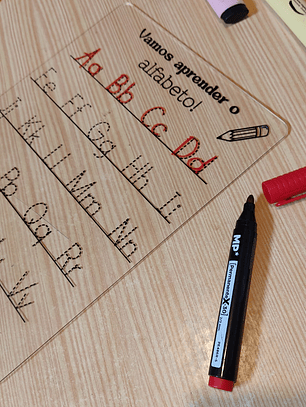 Vamos aprender o
alfabeto!
Aa Bb Cc Dd
Ee Ff Gg Hh Ii
Kk Ll Mm Nn
Pp Qq Rr
Vv
MP
permanente X50